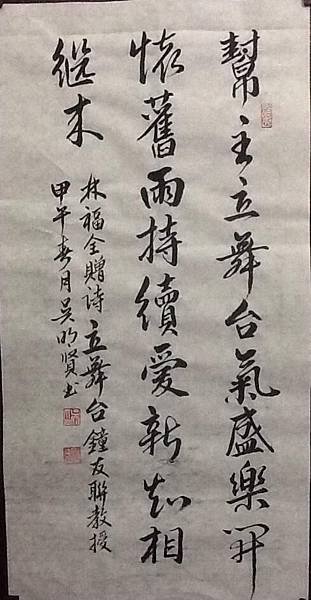 幫主立舞台氣盛樂開
懷舊雨持續愛新知相
繼來
林福全贈詩立舞台鐘友聯教授
甲午春月吳明賢書